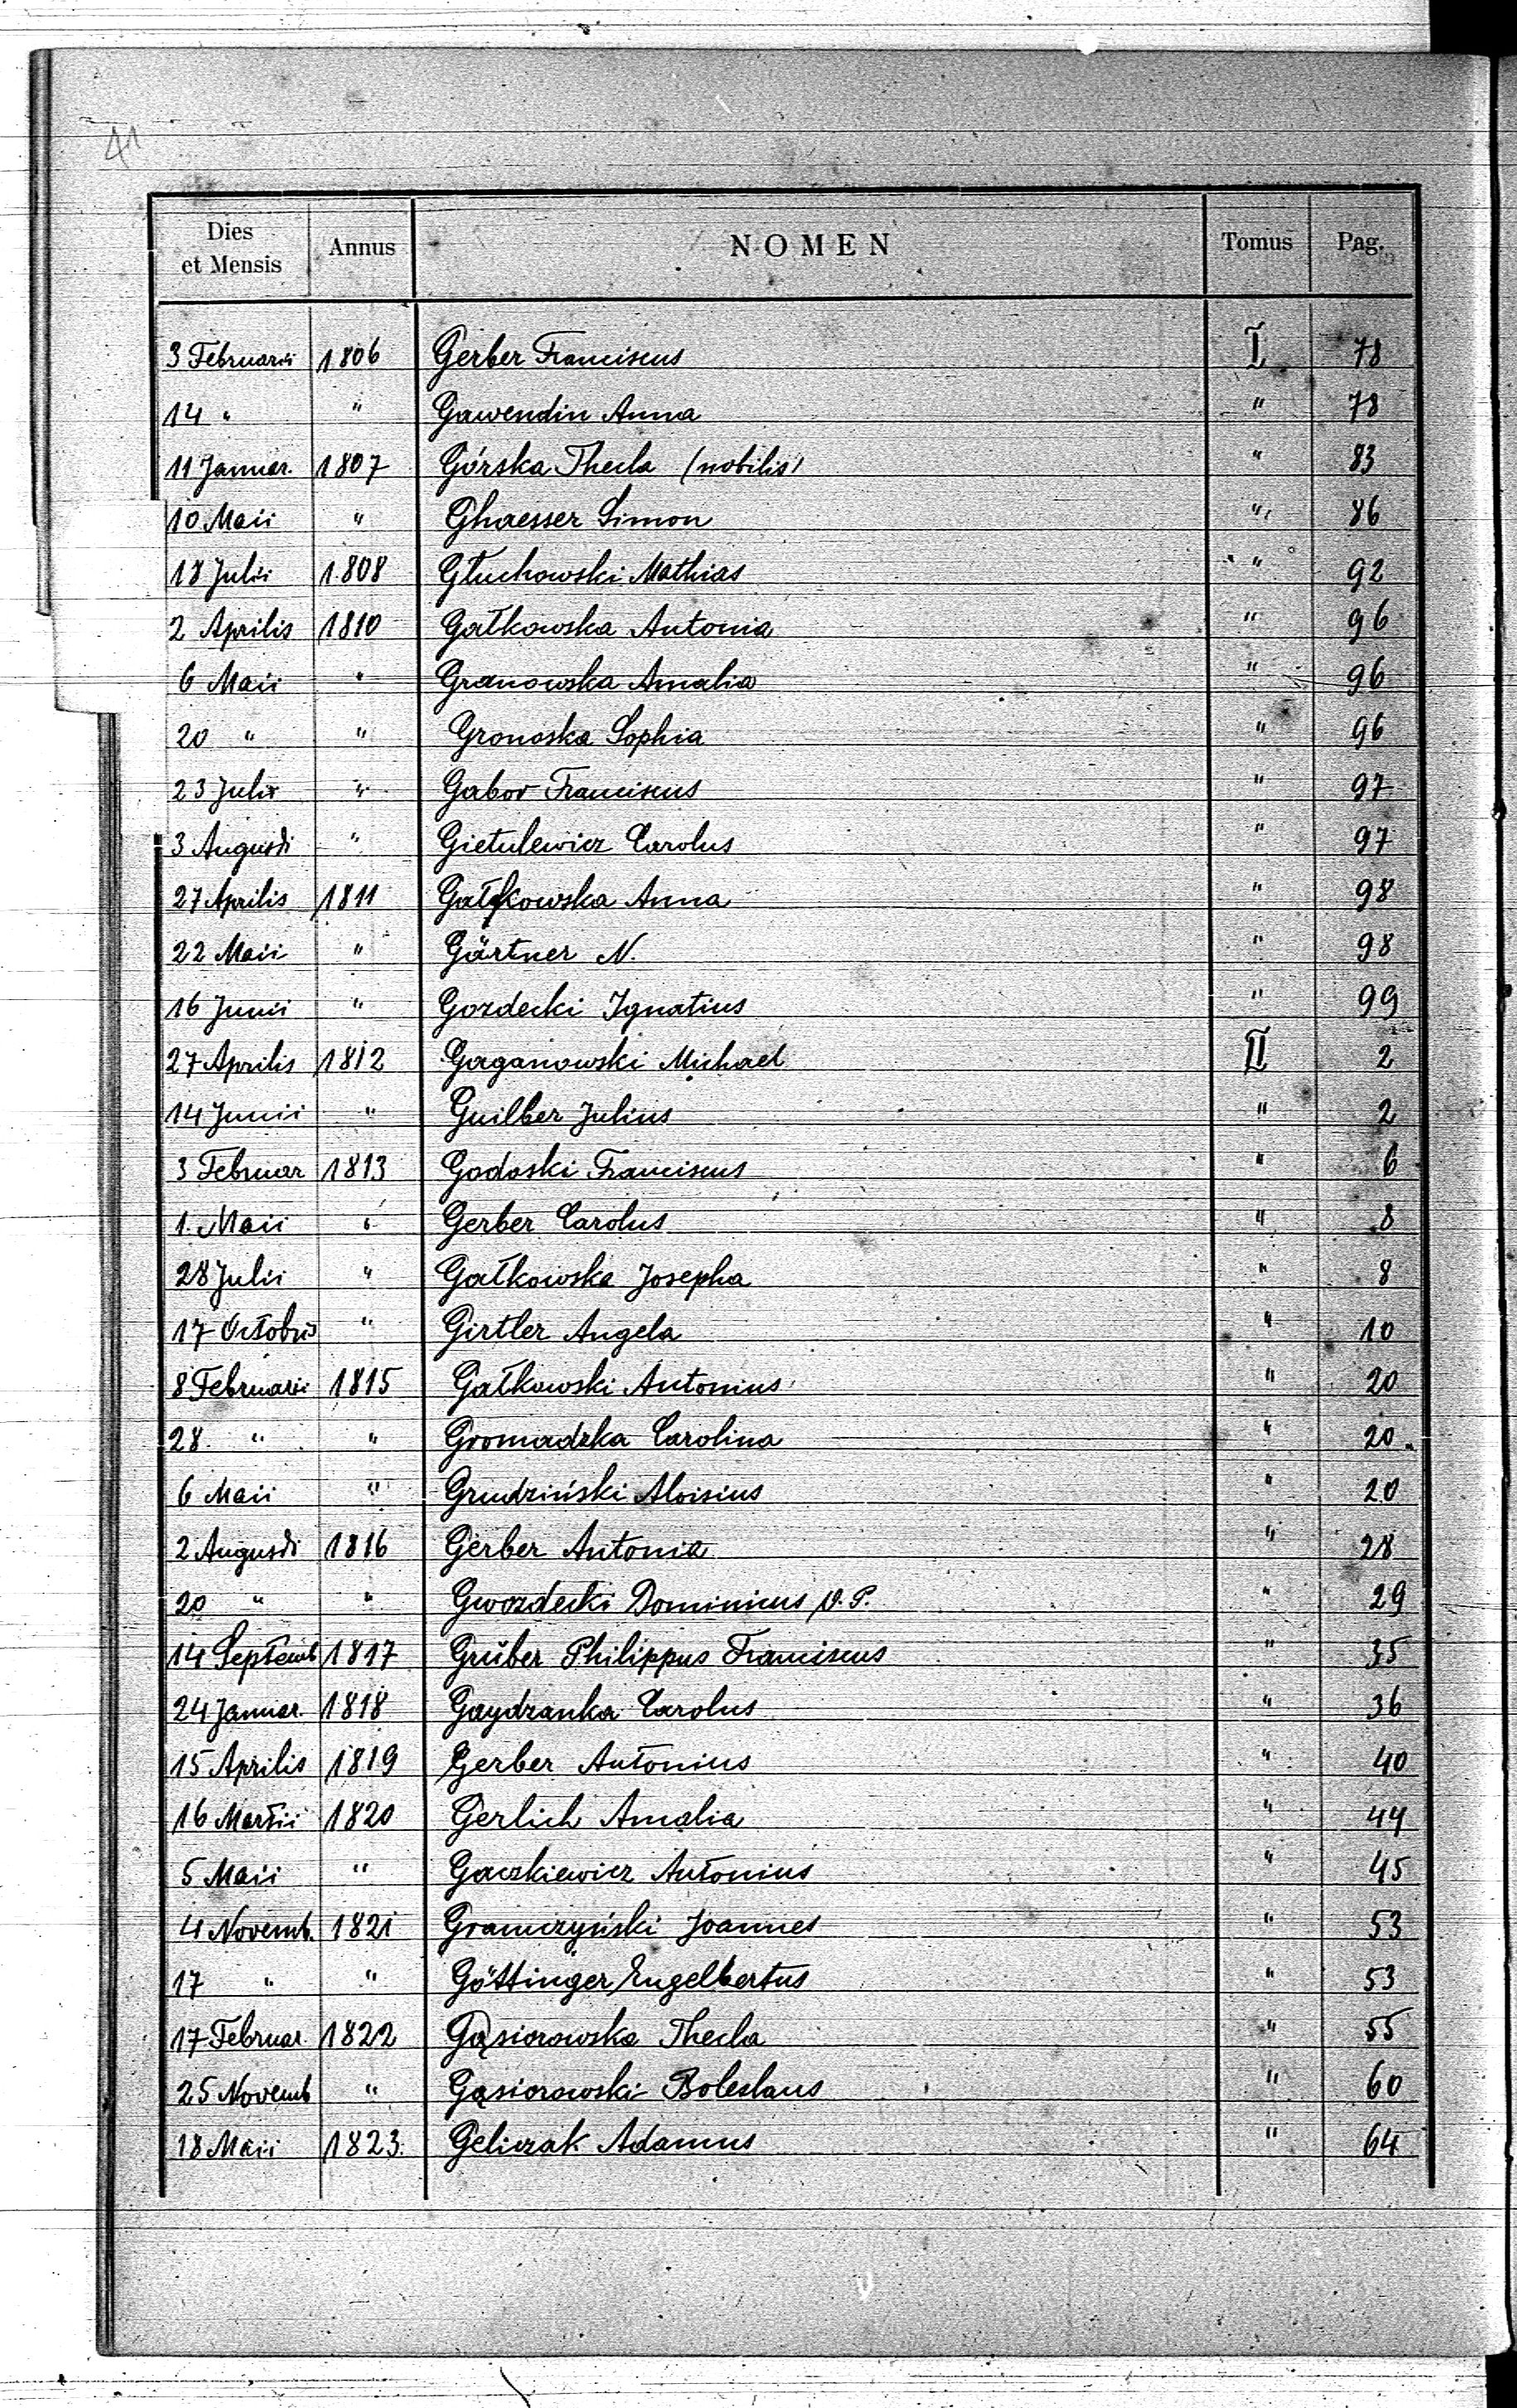 41
Dies et Mensis Annus NOMEN Tomus Pag.
3 Februarii 1806 Gerber Franciscus I 78
14 " " Gawendin Anna " 78
11 Januar. 1807 Górska Thecla (nobilis) " 83
10 Maii " Ghaesser Simon " 86
18 Julii 1808 Głuchowski Mathias " 92
2 Aprilis 1810 Gałkowska Antonia " 96
6 Maii " Granowska Amalia " 96
20 " " Gronoska Sophia " 96
23 Julii " Gabor Franciscus " 97
3 Augusti " Gietulewicz Carolus " 97
27 Aprilis 1811 Gałkowska Anna " 98
22 Maii " Gärtner N. " 98
16 Junii " Gozdecki Ignatius " 99
27 Aprilis 1812 Gaganowski Michael II 2
14 Junii " Guilber Julius " 2
3 Februar 1813 Godoski Franciscus " 6
1. Maii " Gerber Carolus " 8
28 Julii " Gałkowska Josepha " 8
17 Octobris " Girtler Angela " 10
8 Februarii 1815 Gałkowski Antonius " 20
28 " " Gromadzka Carolina " 20
6 Maii " Grudziński Aloisius " 20
2 Augusti 1816 Gerber Antonia " 28
20 " " Gwozdecki Dominicus V.P. " 29
14 Septemb 1817 Grüber Philippus Franciscus " 35
24 Januar. 1818 Gaydzanka Carolus " 36
15 Aprilis 1819 Gerber Antonius " 40
16 Martii 1820 Gerlich Amalia " 44
5 Maii " Gaczkiewicz Antonius " 45
4 Novemb. 1821 Gramczyński Joannes " 53
17 " " Göttinger Engelbertus " 53
17 Februar. 1822 Gąsiorowska Thecla " 55
25 Novemb " Gąsiorowski Boleslaus " 60
18 Maii 1823. Geliczak Adamus " 64